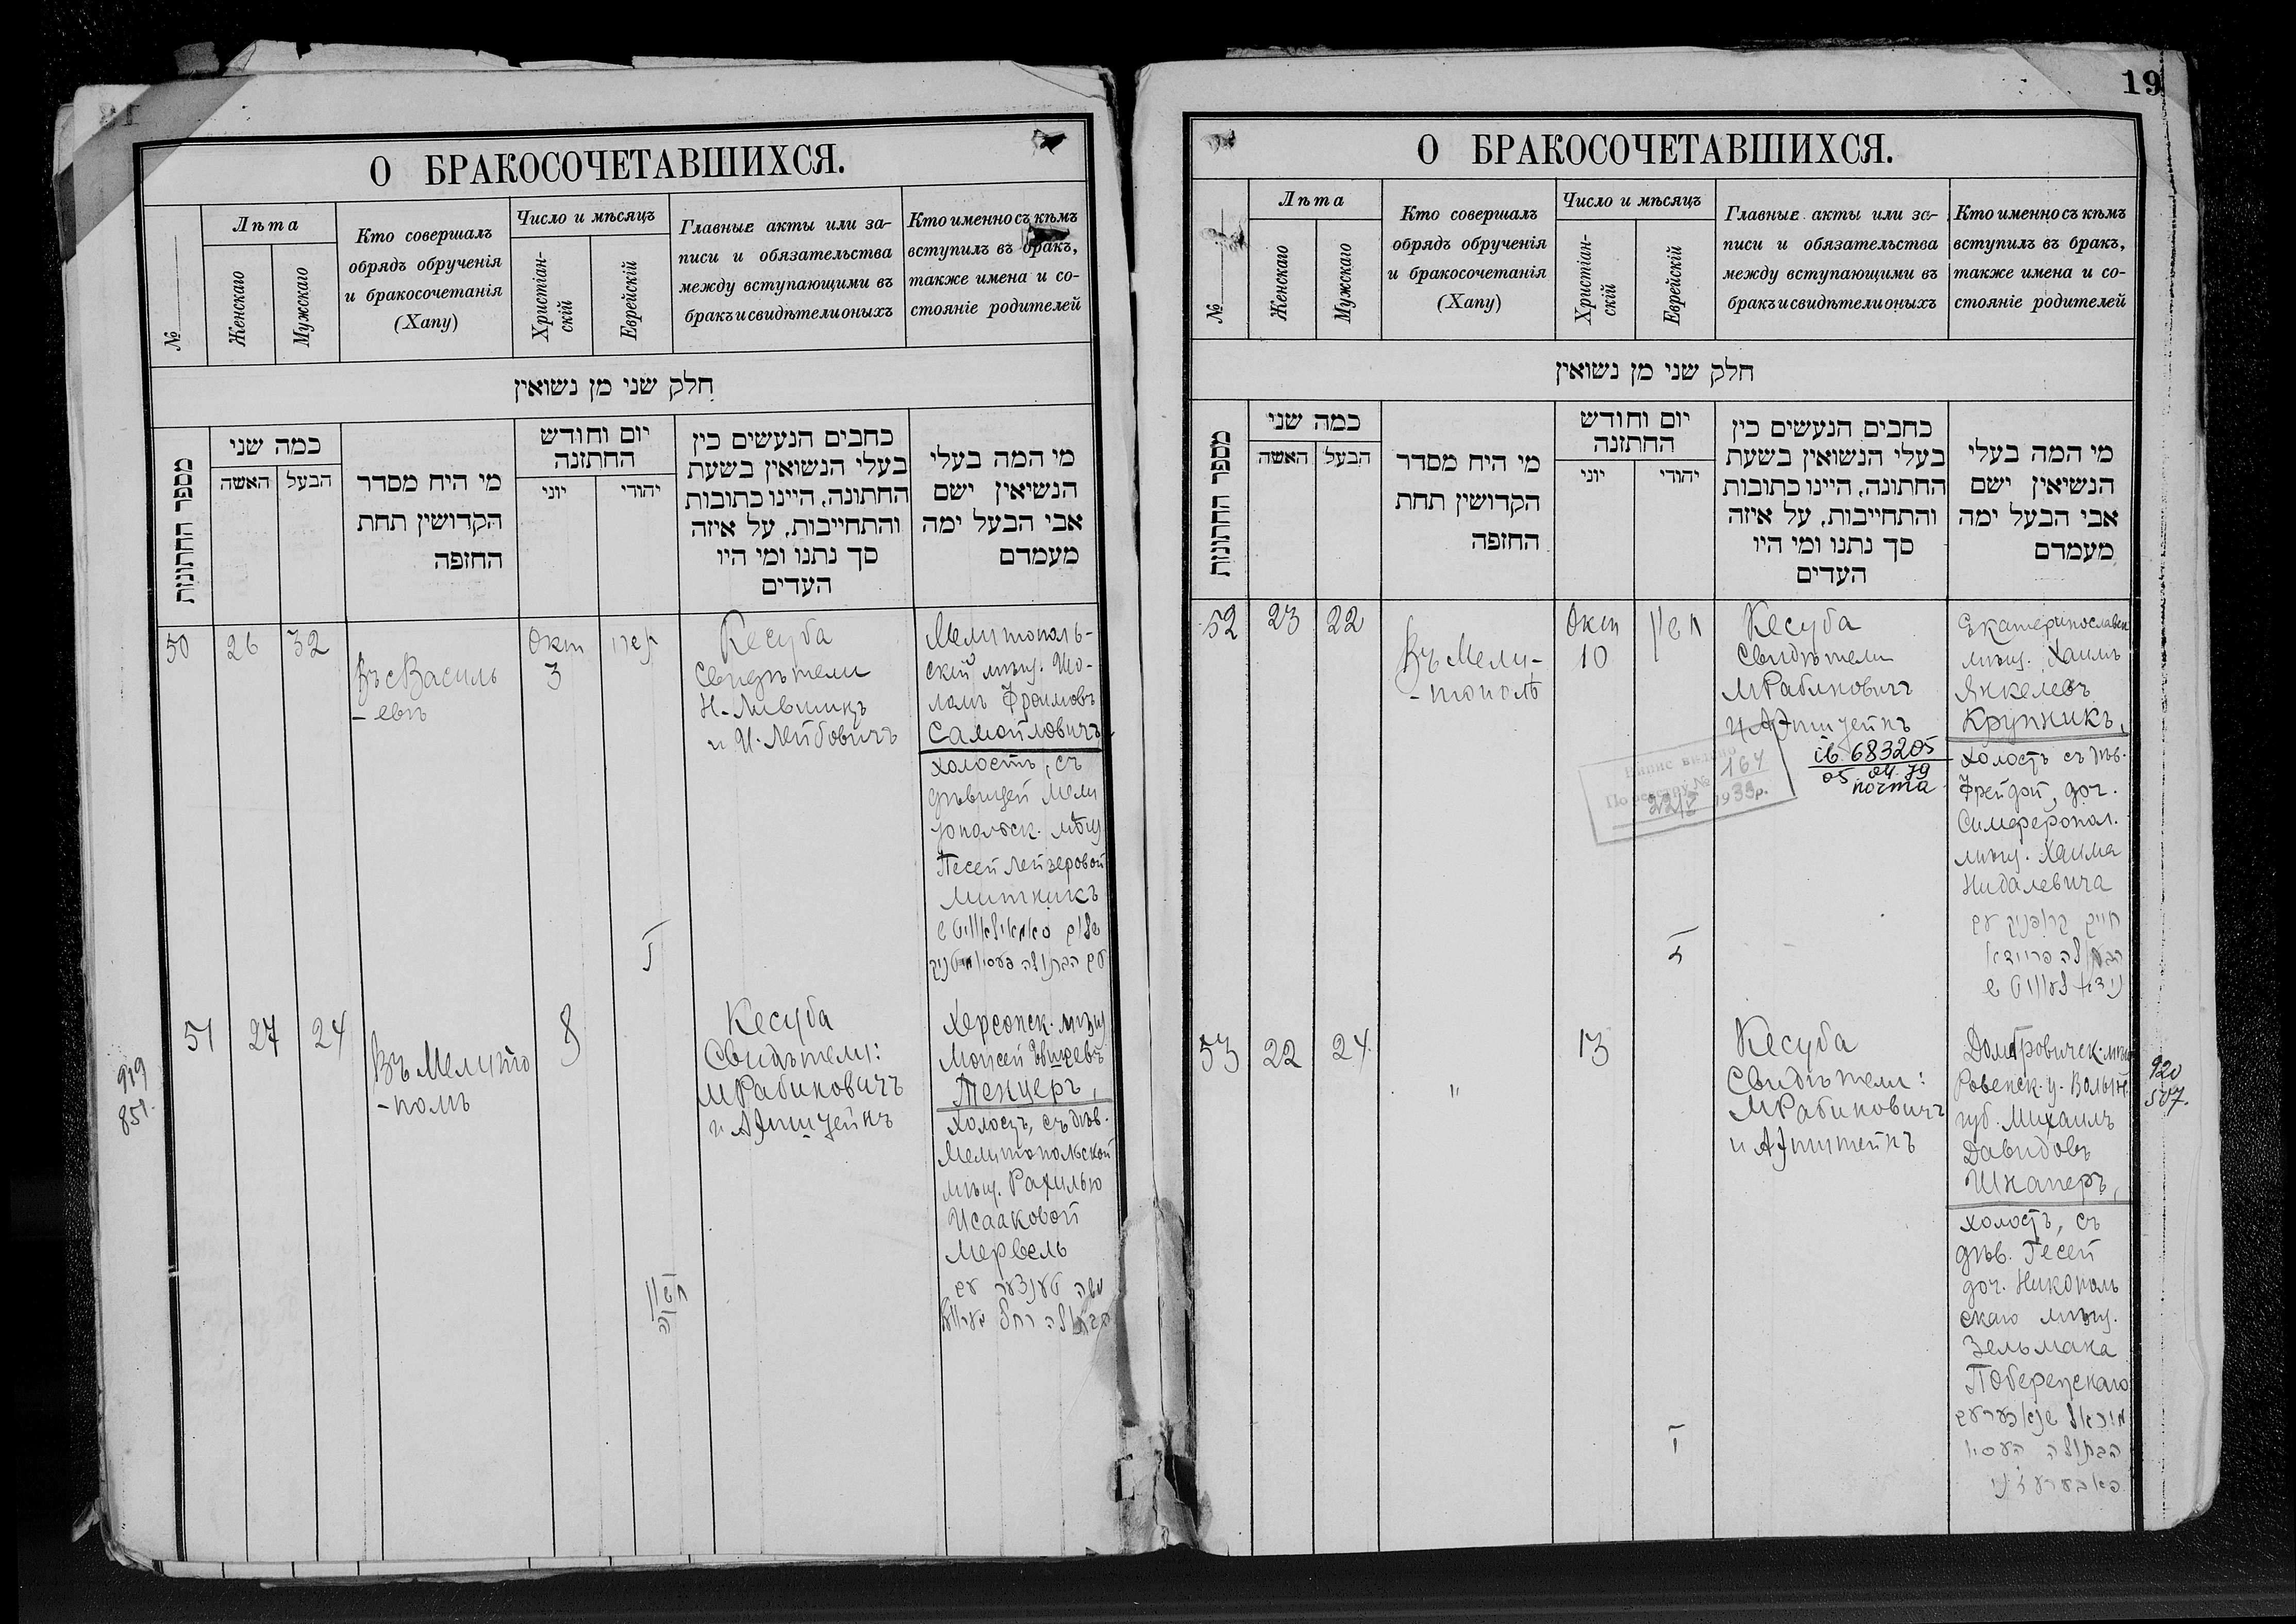 О БРАКОСОЧЕТАВШИХСЯ.
№
Лѣта
Женскаго
Мужскаго
Кто совершалъ
обрядъ обрученія
и бракосочетанія
(Хапу)
Число и мѣсяцъ
Христіан-
скій
Еврейскій
Главные акты или за-
писи и обязательства
между вступающими въ
бракъ и свидѣтели оныхъ
Кто именно съ кѣмъ
вступилъ въ бракъ,
также имена и со-
стояніе родителей
חלק שני מן נשואין
מספר החתונות
כמה שני
האשה
הבעל
מי היח מסדר
הקדושין תחת
החזפה
יום וחודש
החתזנה
יוני
יהודי
כחבים הנעשים כין
בעלי הנשואין בשעת
החתונה, היינו כתובות
והתחייבות, על איזה
סך נתנו ומי היו
העדים
מי המה בעלי
הנשיאין ישם
אבי הבעל ימה
מעמדם
50
26
32
Въ с Василь
-евк
Окт
3
Кесуба
Свидѣтели
Н. Лившиц
и И. Лейбовичъ
Мелитополь-
скій мѣщ. Шо-
ломъ Фроимовъ
Самойловичъ
холостъ, съ
дѣвицей Мели
топольск. мѣщ
Песей Лейзеровой
Митникъ
51
27
24
Въ Мелито
-полѣ
8
חשון
Кесуба
Свидѣтели:
М Рабиновичъ
и А Эпштейнъ
Херсонск. мѣщ
Моисей
Тенцеръ,
холостъ, съ дѣв.
Мелитопольской
мѣщ. Рахилью
Исааковой
Мервель
משה טענצער עם
הבתולה רחל
919
851.
19
О БРАКОСОЧЕТАВШИХСЯ.
№
Лѣта
Женскаго
Мужскаго
Кто совершалъ
обрядъ обрученія
и бракосочетанія
(Хапу)
Число и мѣсяцъ
Христіан-
скій
Еврейскій
Главные акты или за-
писи и обязательства
между вступающими въ
бракъ и свидѣтели оныхъ
Кто именно съ кѣмъ
вступилъ въ бракъ,
также имена и со-
стояніе родителей
חלק שני מן נשואין
מספר החתונות
כמה שני
האשה
הבעל
מי היח מסדר
הקדושין תחת
החזפה
יום וחודש
החתזנה
יוני
יהודי
כחבים הנעשים כין
בעלי הנשואין בשעת
החתונה, היינו כתובות
והתחייבות, על איזה
סך נתנו ומי היו
העדים
מי המה בעלי
הנשיאין ישם
אבי הבעל ימה
מעמדם
52
23
22
Въ Мели-
-тополѣ
Окт
10
Кесуба
Свидѣтели
М Рабиновичъ
и А Эпштейнъ
іб 683205
05.04.79
почта
164
1933р.
Екатеринославск
мѣщ. Хаимъ
Янкелевъ
Крупникъ,
холостъ съ дѣв.
Фрейдой, доч.
Симферопол.
мѣщ. Хаима
Нидалевича
חיים קרופניק עם
הבתולה פריידא
53
22
24
"
13
Кесуба
Свидѣтели:
М Рабиновичъ
и А Эпштейнъ
Домбровичск. мѣщ
Ровенск. у. Волын.
губ. Михаилъ
Давидовъ
Шнаперъ,
холостъ, съ
дѣв. Гесей
доч. Никополь
скаго мѣщ.
Зельмана
Побережскаго
הבתולה העסיא
920
507.